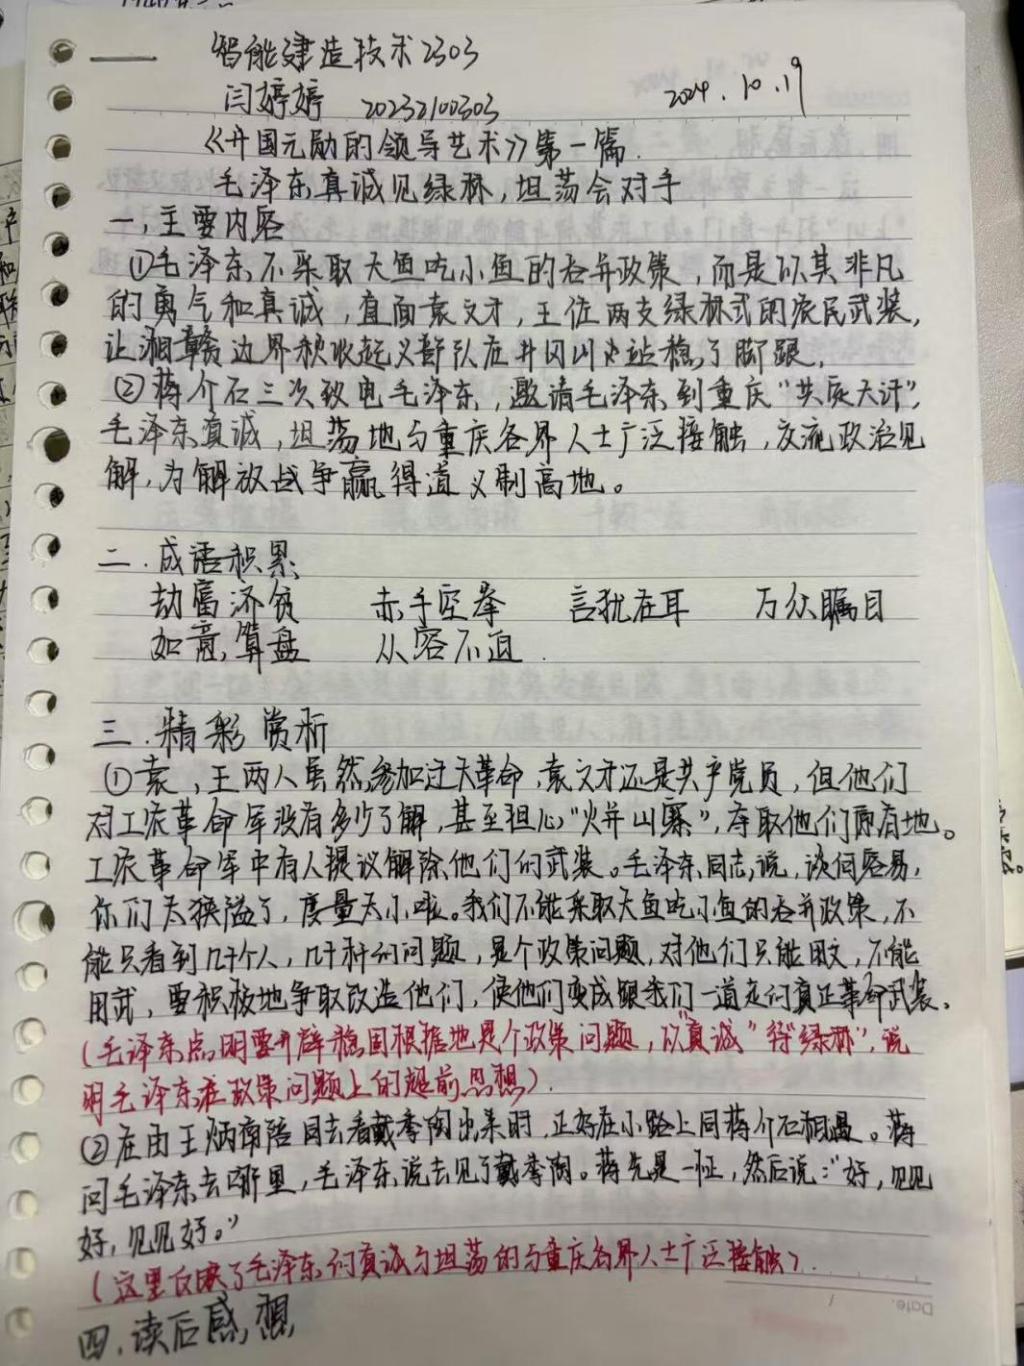 智能建造技术2303
闫婷婷 20232100303 2024.10.19
《开国元勋的领导艺术》第一篇.
毛泽东真诚见绿林,坦荡会对手
一,主要内容
①毛泽东不采取大鱼吃小鱼的吞并政策,而是以其非凡
的勇气和真诚,直面袁文才,王佐两支绿林式的农民武装,
让湘赣边界秋收起义部队在井冈山上站稳了脚跟,
②蒋介石三次致电毛泽东,邀请毛泽东到重庆"共商大计",
毛泽东真诚,坦荡地与重庆各界人士广泛接触,交流政治见
解,为解放战争赢得道义制高地。
二.成语积累
劫富济贫 赤手空拳 言犹在耳 万众瞩目
如意算盘 从容不迫.
三.精彩赏析
①袁,王两人虽然参加过大革命,袁文才还是共产党员,但他们
对工农革命军没有多少了解,甚至担心"火并山寨",夺取他们原有地。
工农革命军中有人提议解除他们的武装。毛泽东同志说,谈何容易,
你们太狭隘了,度量太小啦。我们不能采取大鱼吃小鱼的吞并政策,不
能只看到几十个人,几十杆的问题,是个政策问题,对他们只能用文,不能
用武,要积极地争取改造他们,使他们变成跟我们一道走的真正革命武装.
(毛泽东点明要开辟稳固根据地是个政策问题,以"真诚"待"绿林",说
明毛泽东在政策问题上的超前思想).
②在由王炳南陪同去看戴季陶出来时,正好在小路上同蒋介石相遇。蒋
问毛泽东去哪里,毛泽东说去见了戴季陶。蒋先是一怔,然后说:"好,见见
好,见见好。"
(这里反映了毛泽东的真诚与坦荡的与重庆各界人士广泛接触).
四.读后感想
Date.